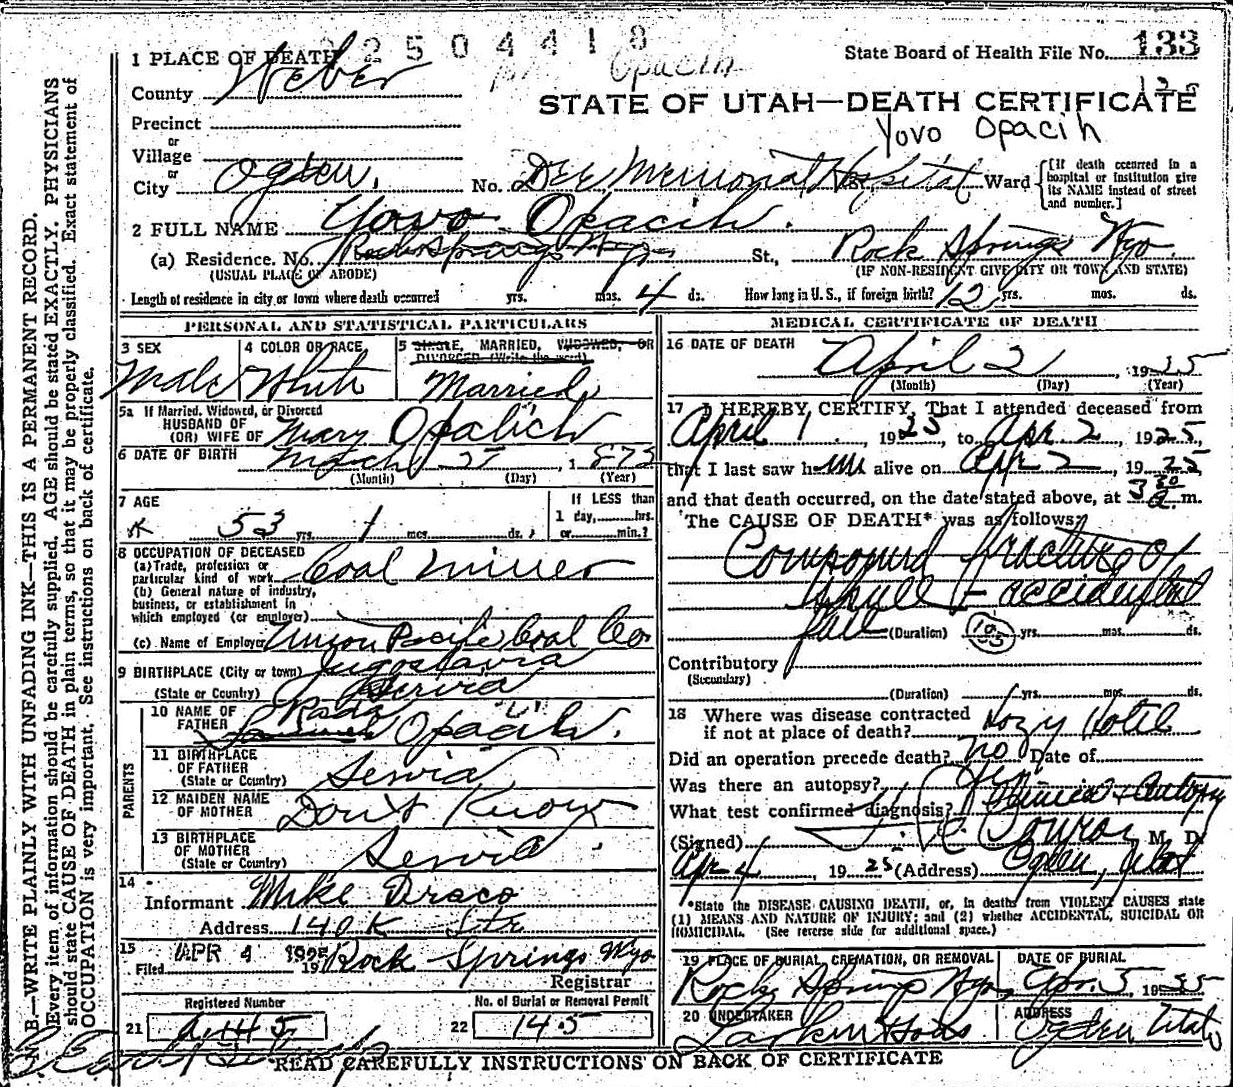 2504418
State Board of Health File No. 133
125
1 PLACE OF DEATH
Opacih
County Weber
STATE OF UTAH—DEATH CERTIFICATE
Yovo Opacih
Precinct
or
Village
or
City Ogden, No. Dee Memorial Hospital St. Ward [If death occurred in a hospital or institution give its NAME instead of street and number.]
2 FULL NAME Yovo Opacih.
(a) Residence. No. Rock Springs Wyo St., Rock Springs Wyo.
(USUAL PLACE OF ABODE) (IF NON-RESIDENT GIVE CITY OR TOWN AND STATE)
Length of residence in city or town where death occurred yrs. mos. 4 ds. How long in U. S., if foreign birth? 12 yrs. mos. ds.
PERSONAL AND STATISTICAL PARTICULARS
3 SEX Male
4 COLOR OR RACE White
5 SINGLE, MARRIED, WIDOWED, OR DIVORCED (Write the word)
Married
5a If Married, Widowed, or Divorced
HUSBAND OF
(OR) WIFE OF Mary Opalich
6 DATE OF BIRTH March 27, 1873
(Month) (Day) (Year)
7 AGE 53 yrs. 1 mos. ds.
If LESS than
1 day, hrs.
or min.?
8 OCCUPATION OF DECEASED
(a) Trade, profession or
particular kind of work Coal Miner
(b) General nature of industry,
business, or establishment in
which employed (or employer)
(c) Name of Employer Union Pacific Coal Co
9 BIRTHPLACE (City or town) Jugoslavia
(State or Country) Servia
PARENTS
10 NAME OF
FATHER Rade Opacih.
11 BIRTHPLACE
OF FATHER
(State or Country) Servia
12 MAIDEN NAME
OF MOTHER Don't Know
13 BIRTHPLACE
OF MOTHER
(State or Country) Servia.
14
Informant Mike Draco
Address 140 K Str
15
Filed APR 4 1925 Rock Springs Wyo
Registrar
Registered Number
21 a-145
No. of Burial or Removal Permit
22 145
MEDICAL CERTIFICATE OF DEATH
16 DATE OF DEATH
April 2, 1925
(Month) (Day) (Year)
17 I HEREBY CERTIFY, That I attended deceased from
April 1, 1925, to Apr 2, 1925,
that I last saw him alive on Apr 2, 1925,
and that death occurred, on the date stated above, at 3 30 a. m.
The CAUSE OF DEATH* was as follows:
Compound fracture of
skull - accidental
fall (Duration) yrs. mos. ds.
Contributory
(Secondary)
(Duration) yrs. mos. ds.
18 Where was disease contracted
if not at place of death? Kozy Hotel
Did an operation precede death? no Date of
Was there an autopsy? Yes
What test confirmed diagnosis? Clinical + Autopsy
(Signed) Conroy M. D.
Apr 4 1925 (Address) Ogden, Utah
*State the DISEASE CAUSING DEATH, or, in deaths from VIOLENT CAUSES state
(1) MEANS AND NATURE OF INJURY; and (2) whether ACCIDENTAL, SUICIDAL OR
HOMICIDAL. (See reverse side for additional space.)
19 PLACE OF BURIAL, CREMATION, OR REMOVAL
Rock Springs Wyo,
DATE OF BURIAL
Apr. 5 1925
20 UNDERTAKER
Larkin & Sons
ADDRESS
Ogden Utah
READ CAREFULLY INSTRUCTIONS ON BACK OF CERTIFICATE
N. B.—WRITE PLAINLY WITH UNFADING INK—THIS IS A PERMANENT RECORD.
Every item of information should be carefully supplied. AGE should be stated EXACTLY. PHYSICIANS
should state CAUSE OF DEATH in plain terms, so that it may be properly classified. Exact statement of
OCCUPATION is very important. See instructions on back of certificate.